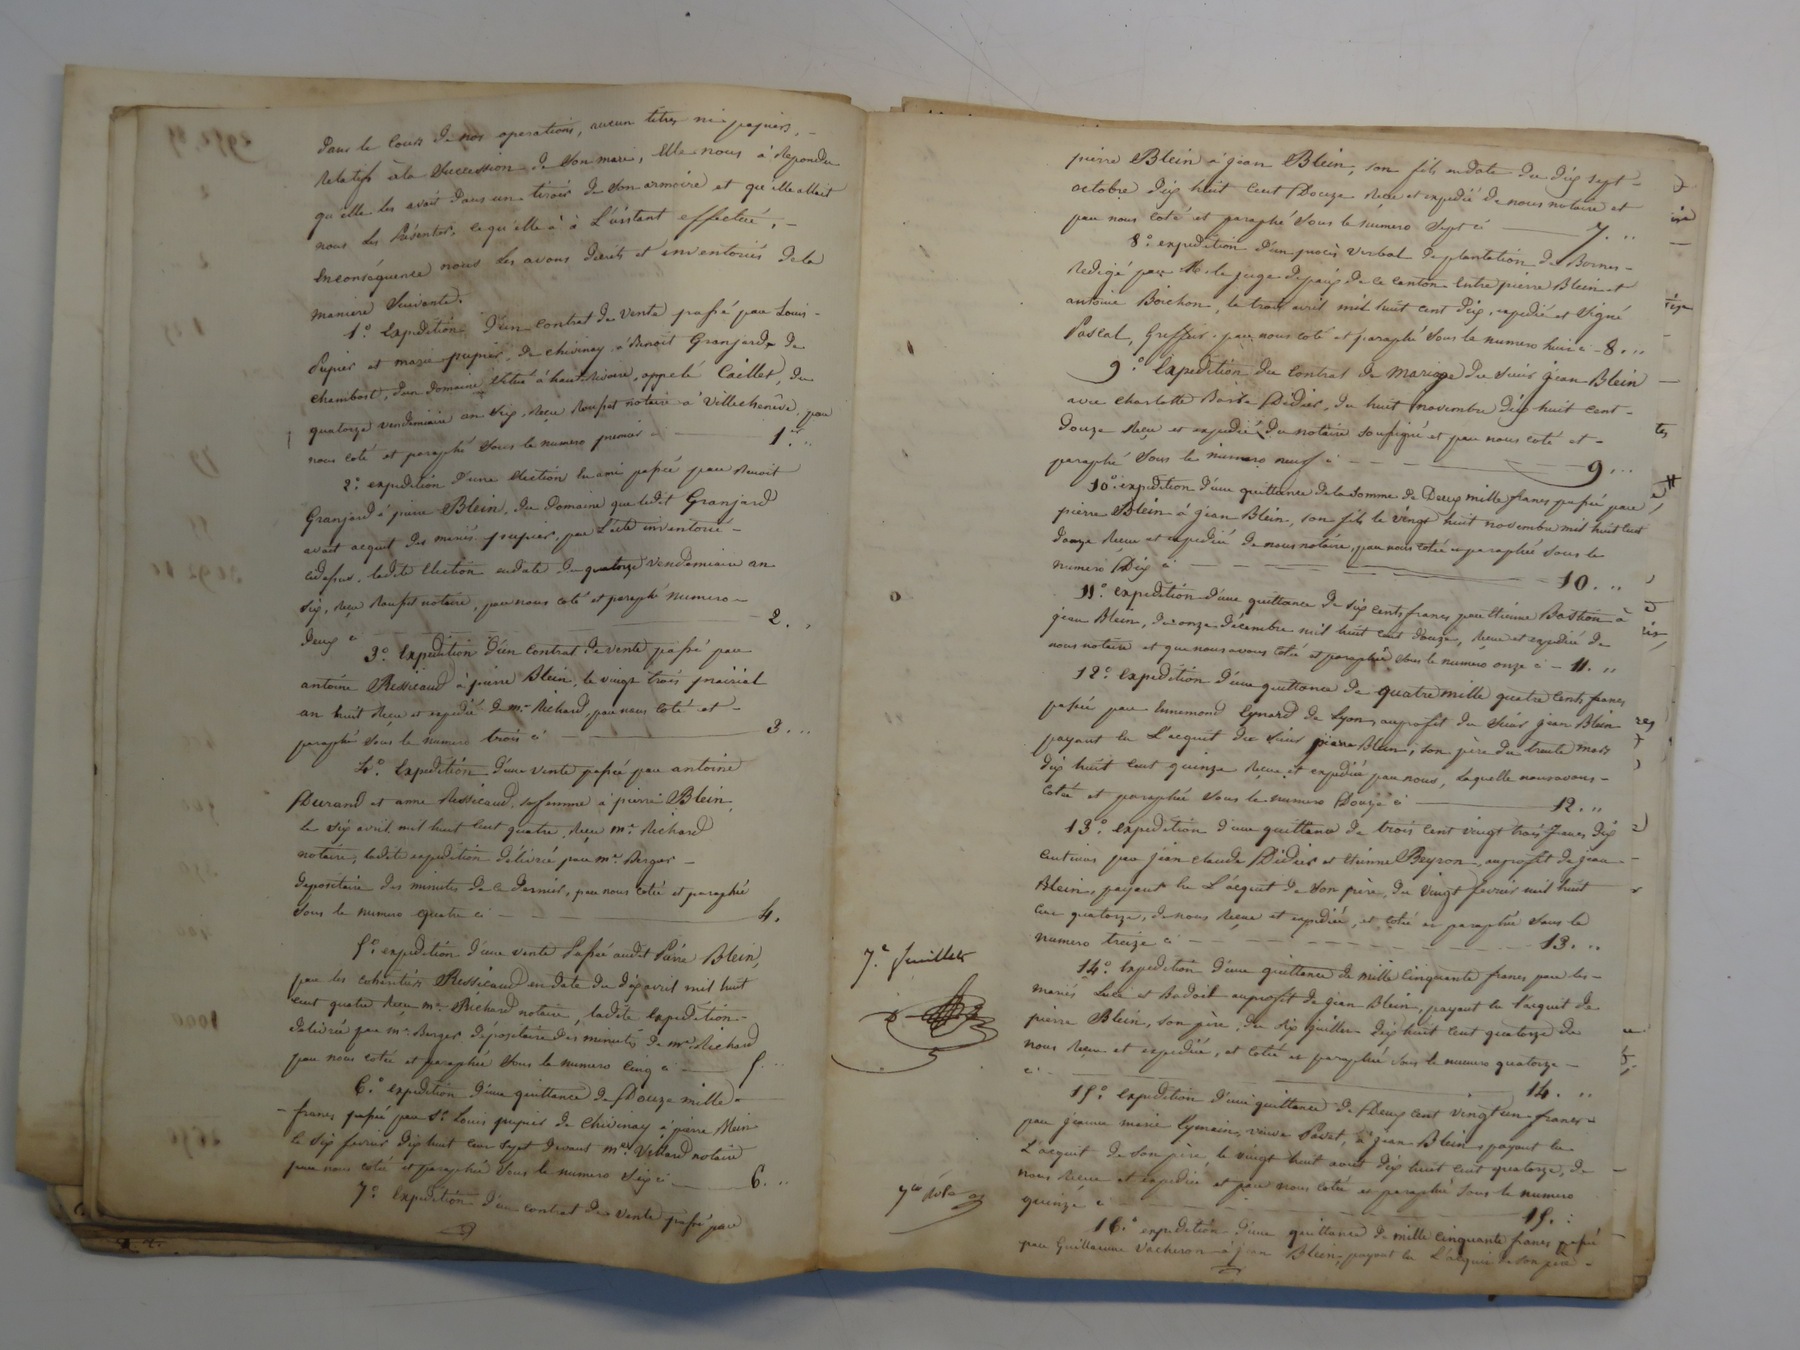 dans le cours de nos operations, aucun titres ni papiers, -
Relatifs à la Succession de Son mari, Elle nous à Repondu
qu'elle les avait dans un tiroir de Son armoire et qu'elle allait
nous les Présenter, ce qu'elle à à L'instant effectué, -
En conséquence nous les avons decrits et inventoriés de la
maniere Suivante.
1.° Expedition d'un Contrat de Vente passé par Louis -
Pupier et marie pupier, de chivinay, à Benoit Granjard, de
Chambost, d'un domaine Situé à haute Rivoire, appelé Caillet, du
quatorze vendemiaire an Six, Reçu notaire à Villechenêve, par
nous coté et paraphé Sous le numero premier ci — 1. "
2.° expedition d'une Election en ami passée par Benoit
Granjard à pierre Blein, du Domaine que ledit Granjard
avait acquit des mariés pupier, par L'acte inventorié -
cidessus, ladite Election en date du quatorze vendemiaire an
Six, Reçu notaire, par nous coté et paraphé numero -
deux ci — 2. "
3.° Expedition d'un Contrat de vente passé par
antoine Ressicaud à pierre Blein, le vingt trois prairial
an huit Reçu et expedié de m.e Richard, par nous coté et -
paraphé Sous le numero trois ci — 3. "
4.° Expedition d'une vente passée par antoine
Durand et anne Ressicaud, sa femme à pierre Blein,
le Six avril mil huit Cent quatre, Reçu m.e Richard
notaire, ladite expedition délivrée par m.e Berger -
depositaire des minutes de ce dernier, par nous cotée et paraphée
Sous le numero quatre ci — 4.
5.° expedition d'une vente Passée audit Pierre Blein,
par les cohéritiers Ressicaud en date du dix avril mil huit
Cent quatre Reçu m.e Richard notaire, ladite Expedition -
délivrée par m.e Berger dépositaire des minutes de m.e Richard
par nous cotée et paraphée Sous le numero Cinq ci — 5. "
6.° expedition d'une quittance de Douze mille -
francs passée par S.r Louis pupier de Chivinay à pierre Blein
le Six fevrier dix huit Cent Sept devant m.e Villard notaire
par nous cotée et paraphée Sous le numero Six ci — 6. "
7.° Expedition d'un contrat de Vente passé par
pierre Blein à jean Blein, son fils en date du dix Sept -
octobre dix huit Cent Douze Reçu et expedié de nous notaire et
par nous Coté et paraphé Sous le numero Sept ci — 7. "
8.° expedition d'un procès verbal de plantation de Bornes -
Redigé par M. le juge de paix de ce canton Entre pierre Blein et
antoine Boichon, le trois avril mil huit Cent Dix, expedié et Signé
Pascal, Greffier, par nous coté et paraphé Sous le numero huit ci - 8. "
9.° Expedition du Contrat de Mariage du Sieur jean Blein
avec Charlotte Didier, du huit novembre dix huit Cent -
douze Reçu et expedié du notaire Soussigné et par nous Coté et -
paraphé Sous le numero neuf ci — 9. "
10.° expedition d'une quittance de la Somme de Deux mille francs passée par
pierre Blein à jean Blein, son fils le vingt huit novembre mil huit Cent
douze Reçue et expediée de nous notaire, par nous cotée et paraphée Sous le
numero Dix ci — 10. "
11.° expedition d'une quittance de Six Cents francs par Etienne Bastion à
jean Blein, du onze décembre mil huit Cent douze, Reçue et expediée de
nous notaire et que nous avons Cotée et paraphée Sous le numero onze ci - 11. "
12.° Expedition d'une quittance de quatre mille quatre Cents francs
passée par Ennemond Eynard de Lyon, au profit du Sieur jean Blein
payant En L'acquit du Sieur pierre Blein, son père du trente mars
dix huit Cent quinze Reçue et expediée par nous, Laquelle nous avons -
cotée et paraphée Sous le numero Douze ci — 12. "
13.° expedition d'une quittance de trois Cent vingt trois francs dix
Centimes par jean Claude Didier et Etienne Beyron au profit de jean -
Blein, payant En L'acquit de Son père, du vingt fevrier mil huit
Cent quatorze, de nous Reçue et expediée, et cotée et paraphée Sous le
numero treize ci — 13. "
14.° Expedition d'une quittance de mille Cinquante francs par les -
mariés Luce et Badoit au profit de jean Blein, payant En l'acquit de
pierre Blein, son père, du Six juillet dix huit Cent quatorze de
nous Reçue et expediée, et cotée et paraphée sous le numero quatorze -
ci - — 14. "
15.° Expedition d'une quittance de Deux Cent vingt un francs -
par jeanne marie Eymain, veuve Pavet, à jean Blein payant En
L'acquit de Son père, le vingt huit aout dix huit Cent quatorze, de
nous Reçue et expediée et par nous Cotée et paraphée Sous le numero
quinze ci — 15. "
7.e feuillet
7.me Rôle
16.° expedition d'une quittance de mille Cinquante francs passée
par Guillaume Vacheron à jean Blein, payant En L'acquit de son père -